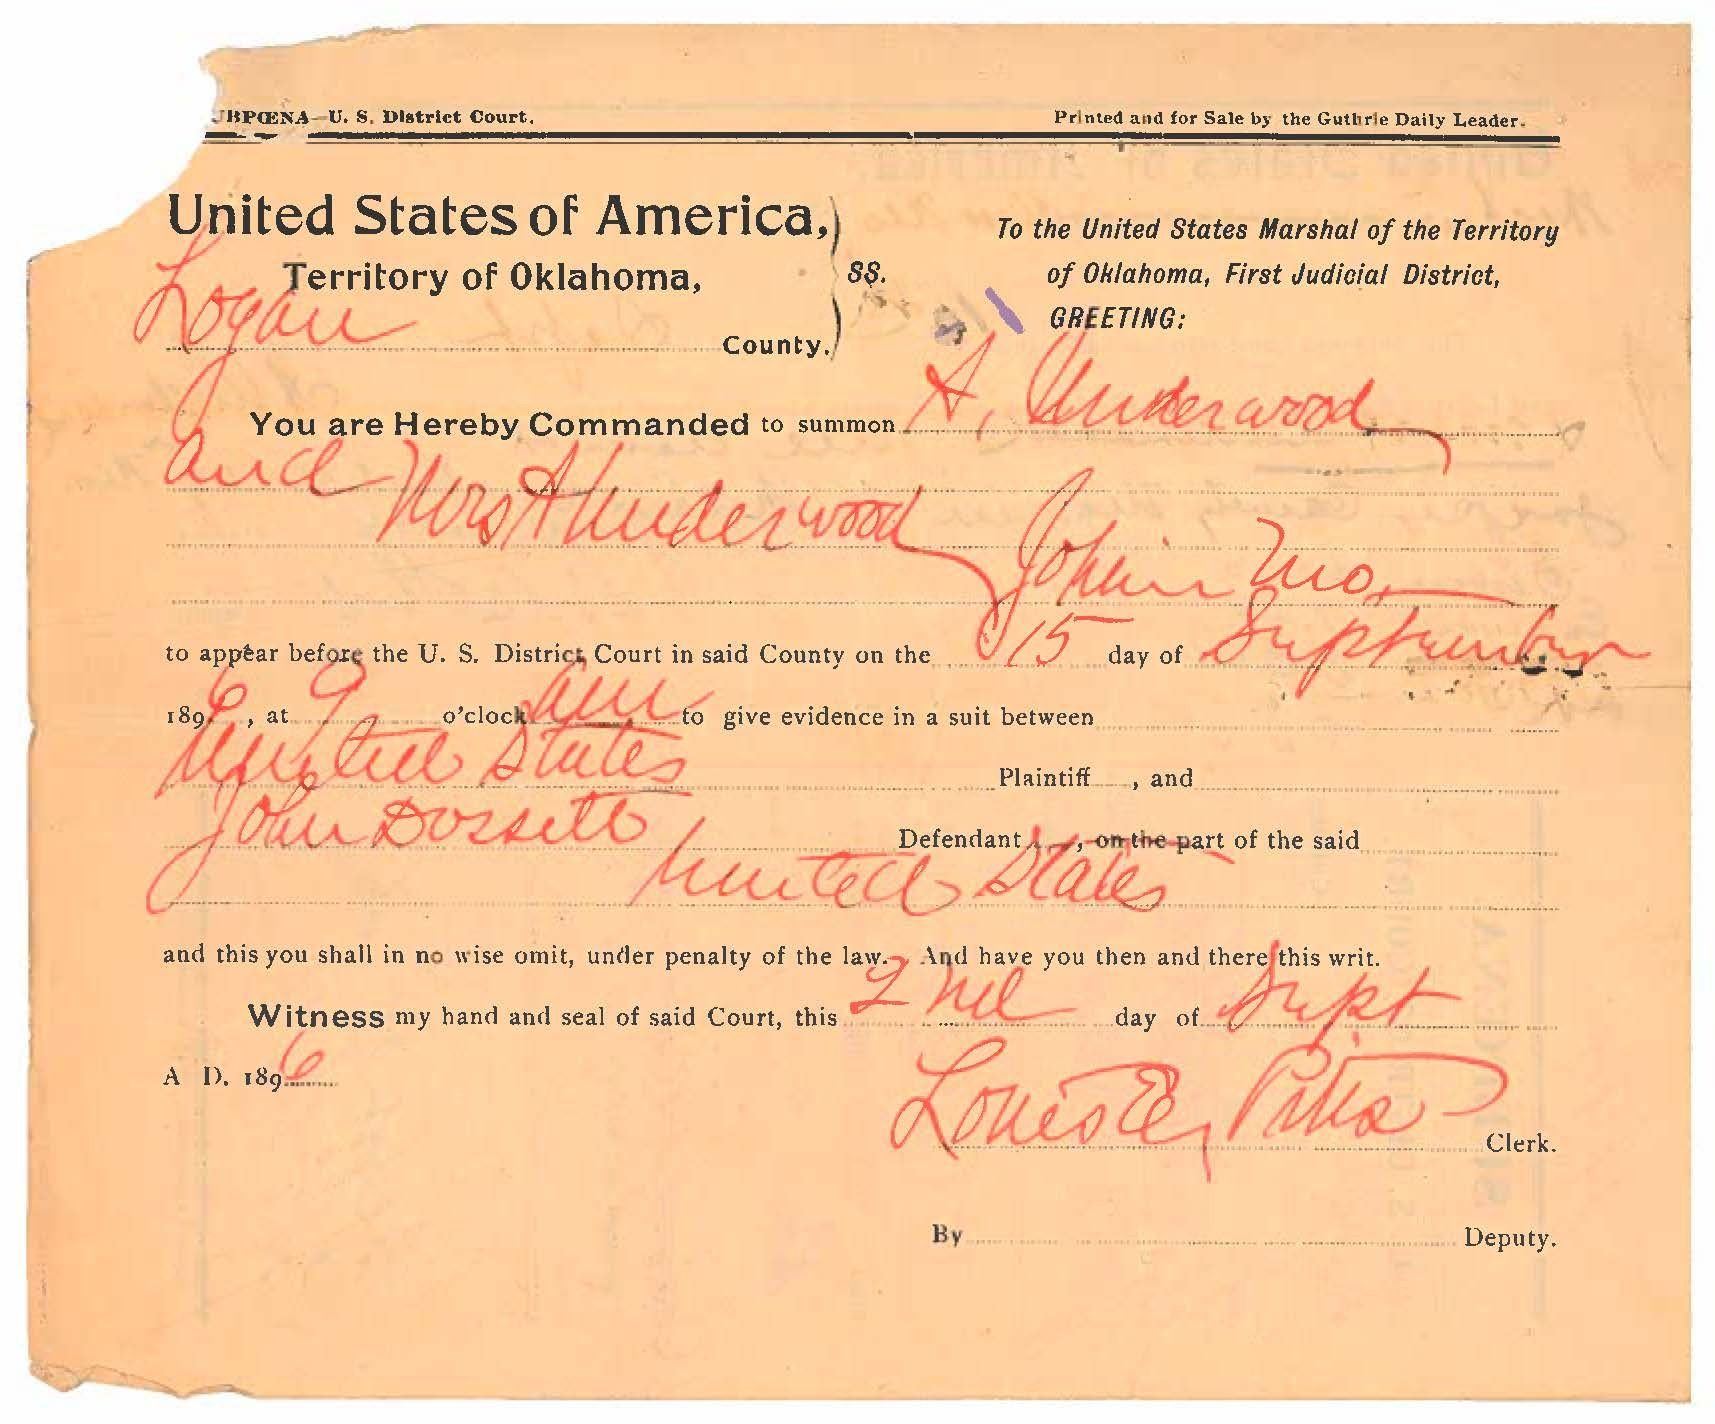 UBPŒNA—U. S. District Court.
Printed and for Sale by the Guthrie Daily Leader.
United States of America,
Territory of Oklahoma,
Logan County.
SS.
To the United States Marshal of the Territory
of Oklahoma, First Judicial District,
GREETING:
You are Hereby Commanded to summon A. Underwood
and Mrs A Underwood
Joplin Mo.
to appear before the U. S. District Court in said County on the 15 day of September
1896, at 9 o'clock am to give evidence in a suit between
United States Plaintiff, and
John Dossett Defendant, on the part of the said
United States
and this you shall in no wise omit, under penalty of the law. And have you then and there this writ.
Witness my hand and seal of said Court, this 2nd day of Sept
A D. 1896
Louis E, Pitts Clerk.
By Deputy.